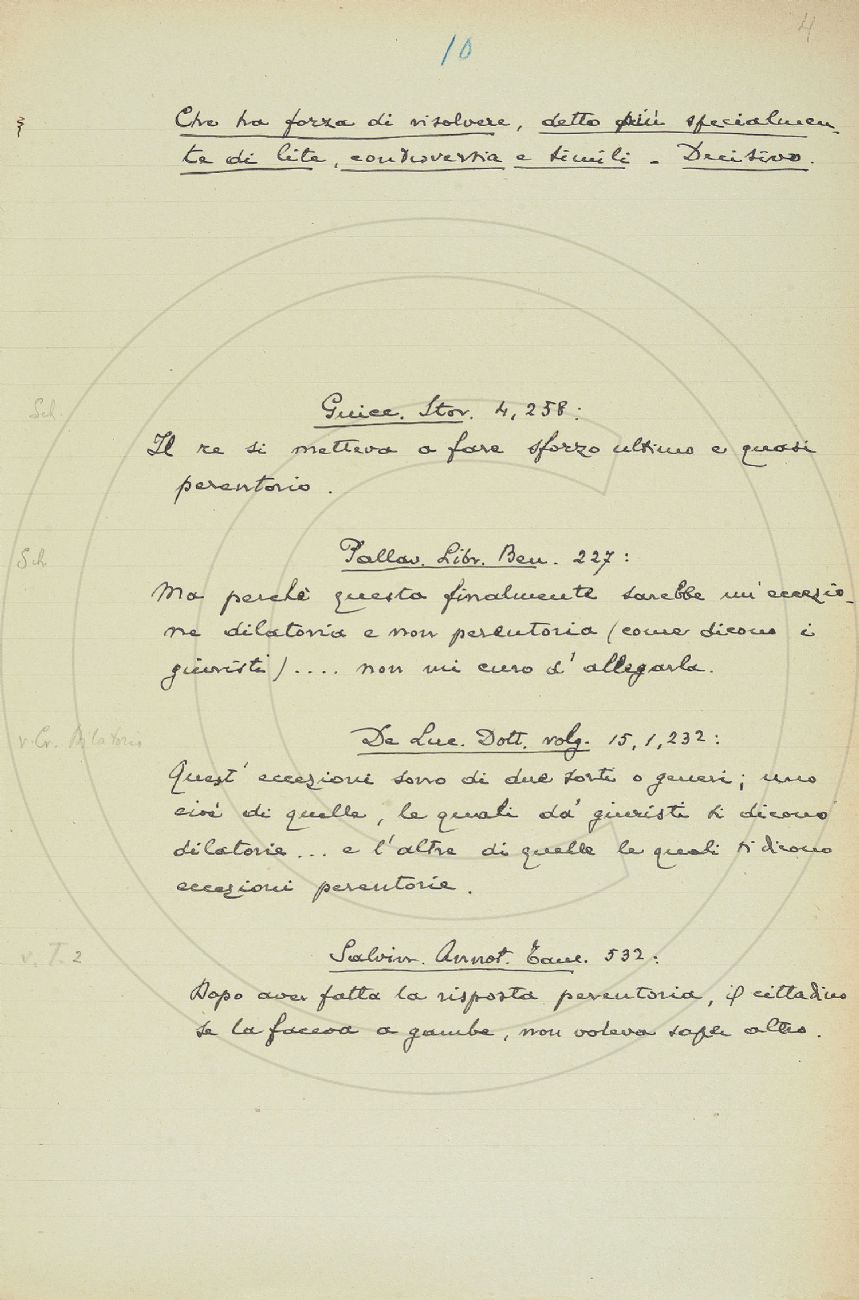 4
10
Che ha forza di risolvere, detto più specialmen-
te di lite, controversia e simili - Decisivo.
Sch.
Guicc. Stor. 4, 258:
Il re si metteva a fare sforzo ultimo e quasi
perentorio.
Sch.
Pallav. Libr. Ben. 227:
Ma perchè questa finalmente sarebbe un'eccezio-
ne dilatoria e non perentoria (come dicono i
giuristi).... non mi curo d'allegarla.
v. Cr. Dilatorio
De Luc. Dott. volg. 15, 1, 232:
Quest' eccezioni sono di due sorti o generi; uno
cioè di quelle, le quali da' giuristi si dicono
dilatorie... e l'altre di quelle le quali si dicono
eccezioni perentorie.
v. T. 2
Salvin. Annot. Tanc. 532:
Dopo aver fatta la risposta perentoria, il cittadino
se la faceva a gambe, non voleva saper altro.